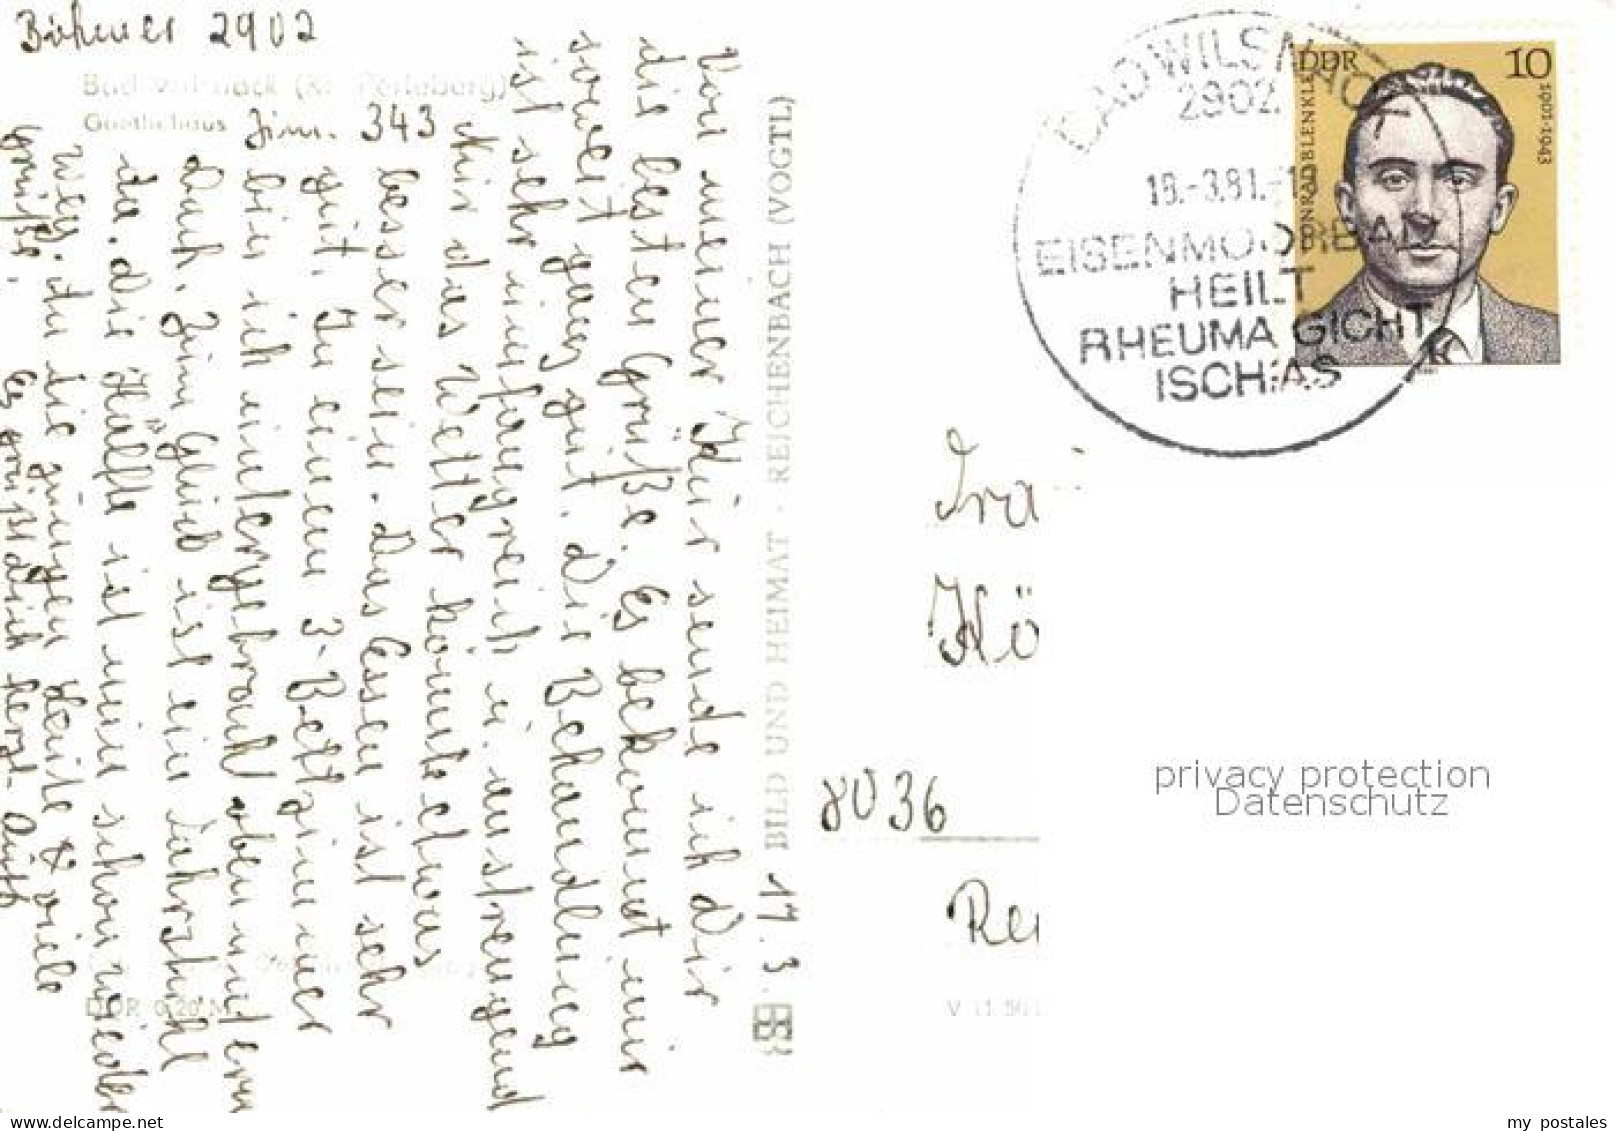 Böhmer 2902
Bad Wilsnack (Kr. Perleberg)
Goethehaus
Zim. 343
17.3.
Von meiner Kur sende ich Dir
die besten Grüße. Es bekommt mir
soweit ganz gut. Die Behandlung
ist sehr umfangreich u. anstrengend
Nur das Wetter könnte etwas
besser sein. Das Essen ist sehr
gut. In einem 3-Bettzimmer
bin ich untergebracht oben unterm
Dach. Zum Glück ist ein Fahrstuhl
da. Die Hälfte ist nun schon wieder
weg. die jungen Leute & viele
Grüße.
Es grüßt Dich herzl.
BILD UND HEIMAT · REICHENBACH (VOGTL)
DDR 0,20 M
BAD WILSNACK
2902
18.-3.81.-1
EISENMOORBAD
HEILT
RHEUMA GICHT
ISCHIAS
DDR
10
KONRAD BLENKLE
1901-1943
Frau
Kö
8036
Re
privacy protection
Datenschutz
delcampe.net
my postales